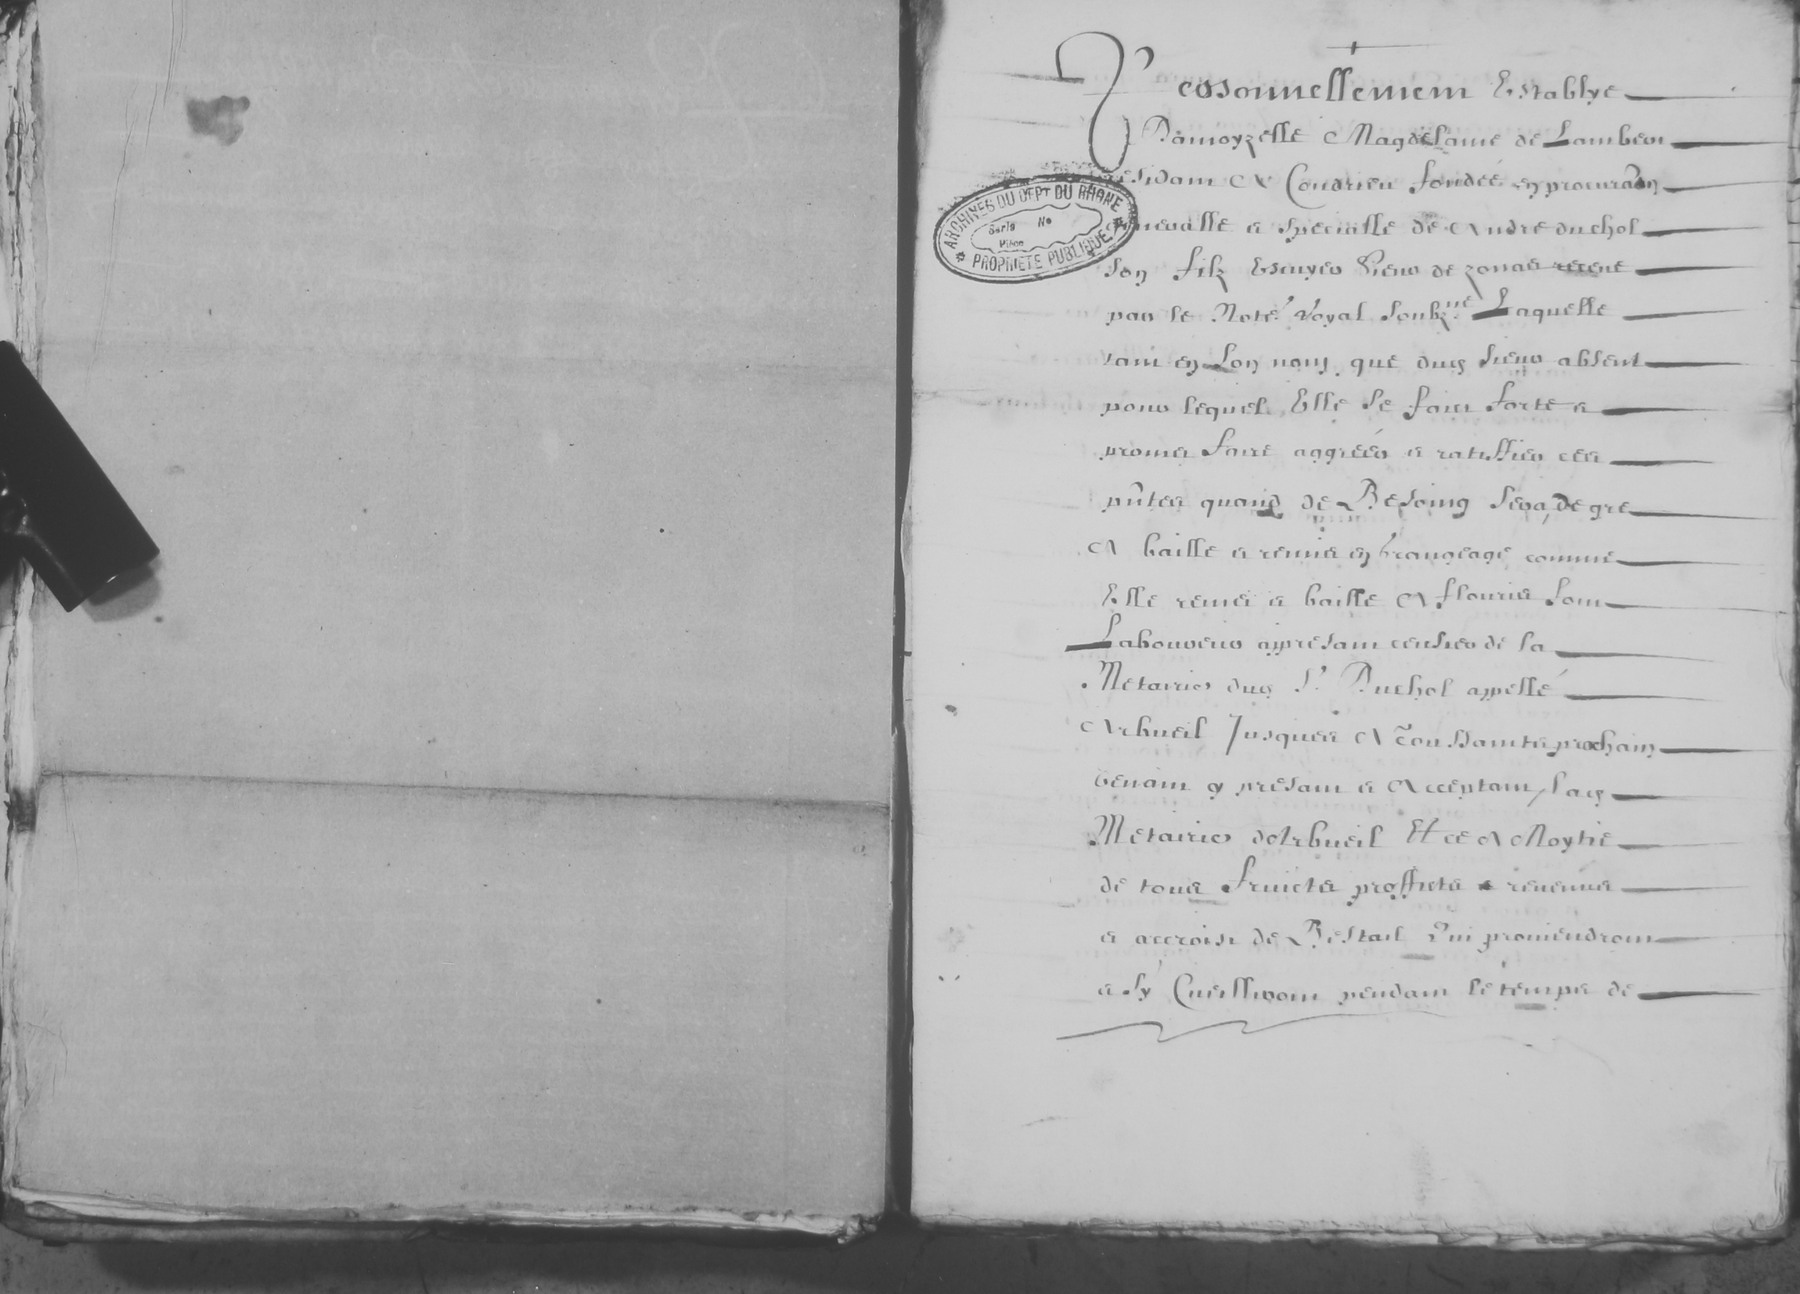 Personnellement Establye
Damoyzelle Magdelaine de Lambert
residant A Condrieu fondée en procura͠on
generalle et specialle de Andre duchol
son filz Escuyer sieur de zonas receue
ARCHIVES DU DEPT DU RHONE
Série No
PROPRIETE PUBLIQUE
par le Note.' Royal soubz.né Laquelle
tant en son nom que dud sieur absent
pour lequel Elle se faict forte et
promet faire aggréér et ratiffier ces
pñtes quand de Besoing sera, de gre
A baille et remis en grangeage comme
Elle remet et baille A flouris
Laboureur appresant censier de la
Metairie dud S.r Duchol appellé
Arbueil Jusques A Toussaintz prochain
venant y presant et Acceptant, lad
Metairie dArbueil Et ce A Moytie
de tous fruictz proffictz et revenus
et accroist de Bestail Qui proviendront
et sy Cueilliront pendant le temps de